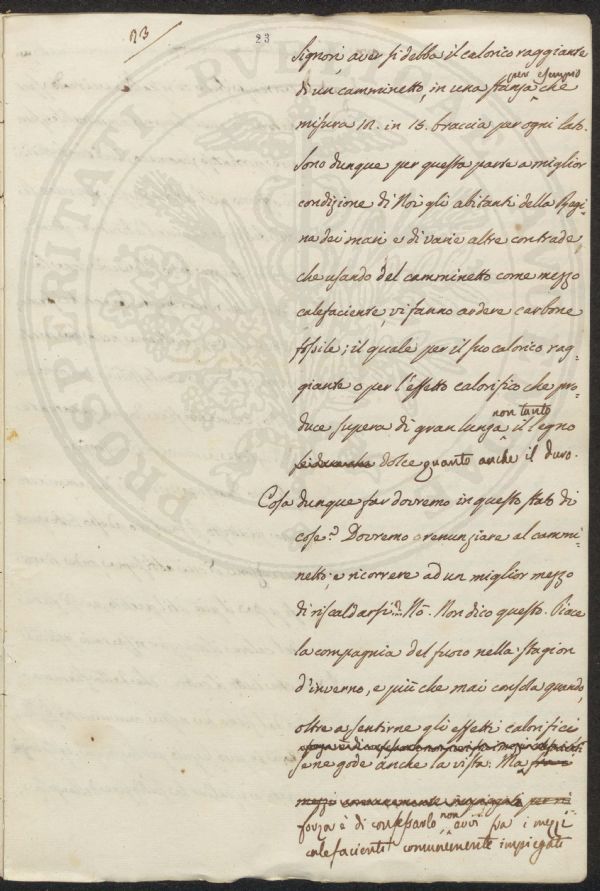 23
23
Signori, aver si debba il calorico raggiante
per esempio
di un camminetto, in una stanza che
misura 12. in 15. braccia per ogni lato.
Sono dunque per questa parte a miglior
condizione di Noi gli abitanti della Regi-
na dei mari e di varie altre contrade,
che usando del camminetto come mezzo
calefaciente, vi fanno ardere carbone
fossile; il quale per il suo calorico rag-
giante o per l'effetto calorifico che pro-
non tanto
duce supera di gran lunga il legno
dolce quanto anche il duro.
Cosa dunque far dovremo in questo stato di
cose? Dovremo o renunziare al cammi-
netto, e ricorrere ad un miglior mezzo
di riscaldarsi? Nò. Non dico questo. Piace
la compagnia del fuoco nella stagion
d'inverno, e più che mai consola quando,
oltre a sentirne gli effetti calorifici
se ne gode anche la vista. Ma
forza è di confessarlo non avvi fra i mezzi
calefacienti comunemente impiegati